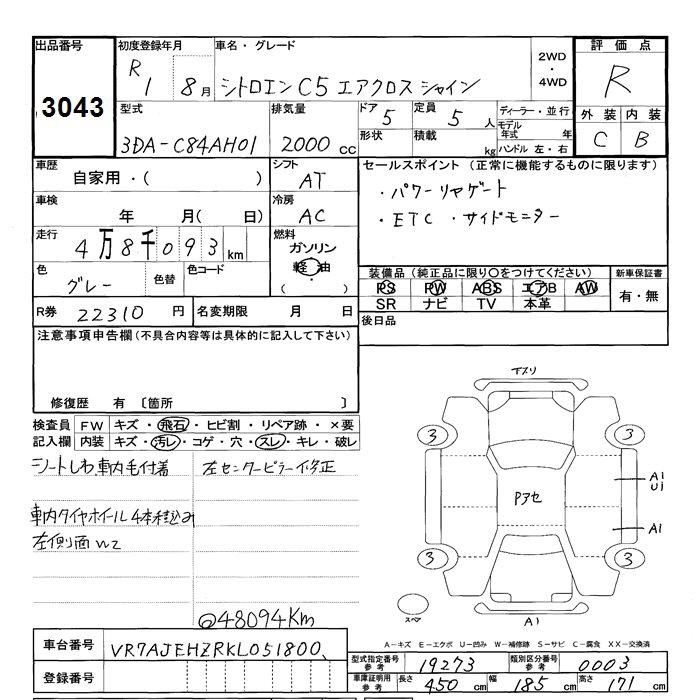 出品番号 初度登録年月 車名・グレード 2WD・4WD 評価点
3043 R1 8月 シトロエン C5 エアクロス シャイン R
型式 排気量 ドア 5 定員 5人 ディーラー・並行 外装 内装
3DA-C84AH01 2000cc 形状 積載 kg モデル年式 年 ハンドル 左・右 C B
車歴 シフト セールスポイント (正常に機能するものに限ります)
自家用・( ) AT ・パワーリヤゲート
車検 冷房 ・ETC ・サイドモニター
年 月( 日) AC
走行 燃料
4万8千093km ガソリン
色 色替 色コード 軽油 装備品 (純正品に限り○をつけてください) 新車保証書
グレー ( ・ ) PS PW ABS エアB AW 有・無
SR ナビ TV 本革
R券 22310円 名変期限 月 日 後日品
注意事項申告欄(不具合内容等は具体的に記入して下さい)
修復歴 有 〔箇所 〕
検査員 FW キズ・飛石・ヒビ割・リペア跡・×要
記入欄 内装 キズ・汚レ・コゲ・穴・スレ・キレ・破レ
シートしわ、車内毛付着 左センターピラー修正
車内タイヤホイール4本積込み
左側面W2
@48094Km
ヤスリ
3 3
A1
U1
Pアセ
A1
3 3
スペア A1
A-キズ E-エクボ U-凹み W-補修跡 S-サビ C-腐食 XX-交換済
車台番号 VR7AJEHZRKL051800、
型式指定番号 参考 19273 類別区分番号 参考 0003
登録番号 車庫証明用 参考 長さ 450cm 幅 185cm 高さ 171cm